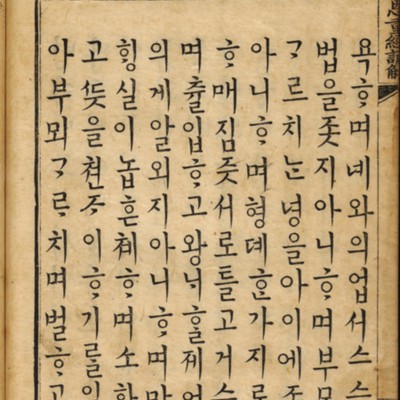 恩重經諺解
욕ᄒᆞ며녜와의업서스스
법을좃지아니ᄒᆞ며부모
ᄀᆞᄅᆞ치ᄂᆞᆫ녕을아이에조
아니ᄒᆞ며형뎨ᄒᆞᆫ가지로
ᄒᆞ매짐즛서로틀고거스
며츌입ᄒᆞ고왕ᄂᆡᄒᆞᆯ제어
의게알외지아니ᄒᆞ며말
ᄒᆡᆼ실이놉흔체ᄒᆞ며소
고ᄯᅳᆺ을쳔ᄌᆞ이ᄒᆞ기ᄅᆞᆯ이
아부뫼ᄀᆞᄅᆞ치며벌ᄒᆞ고